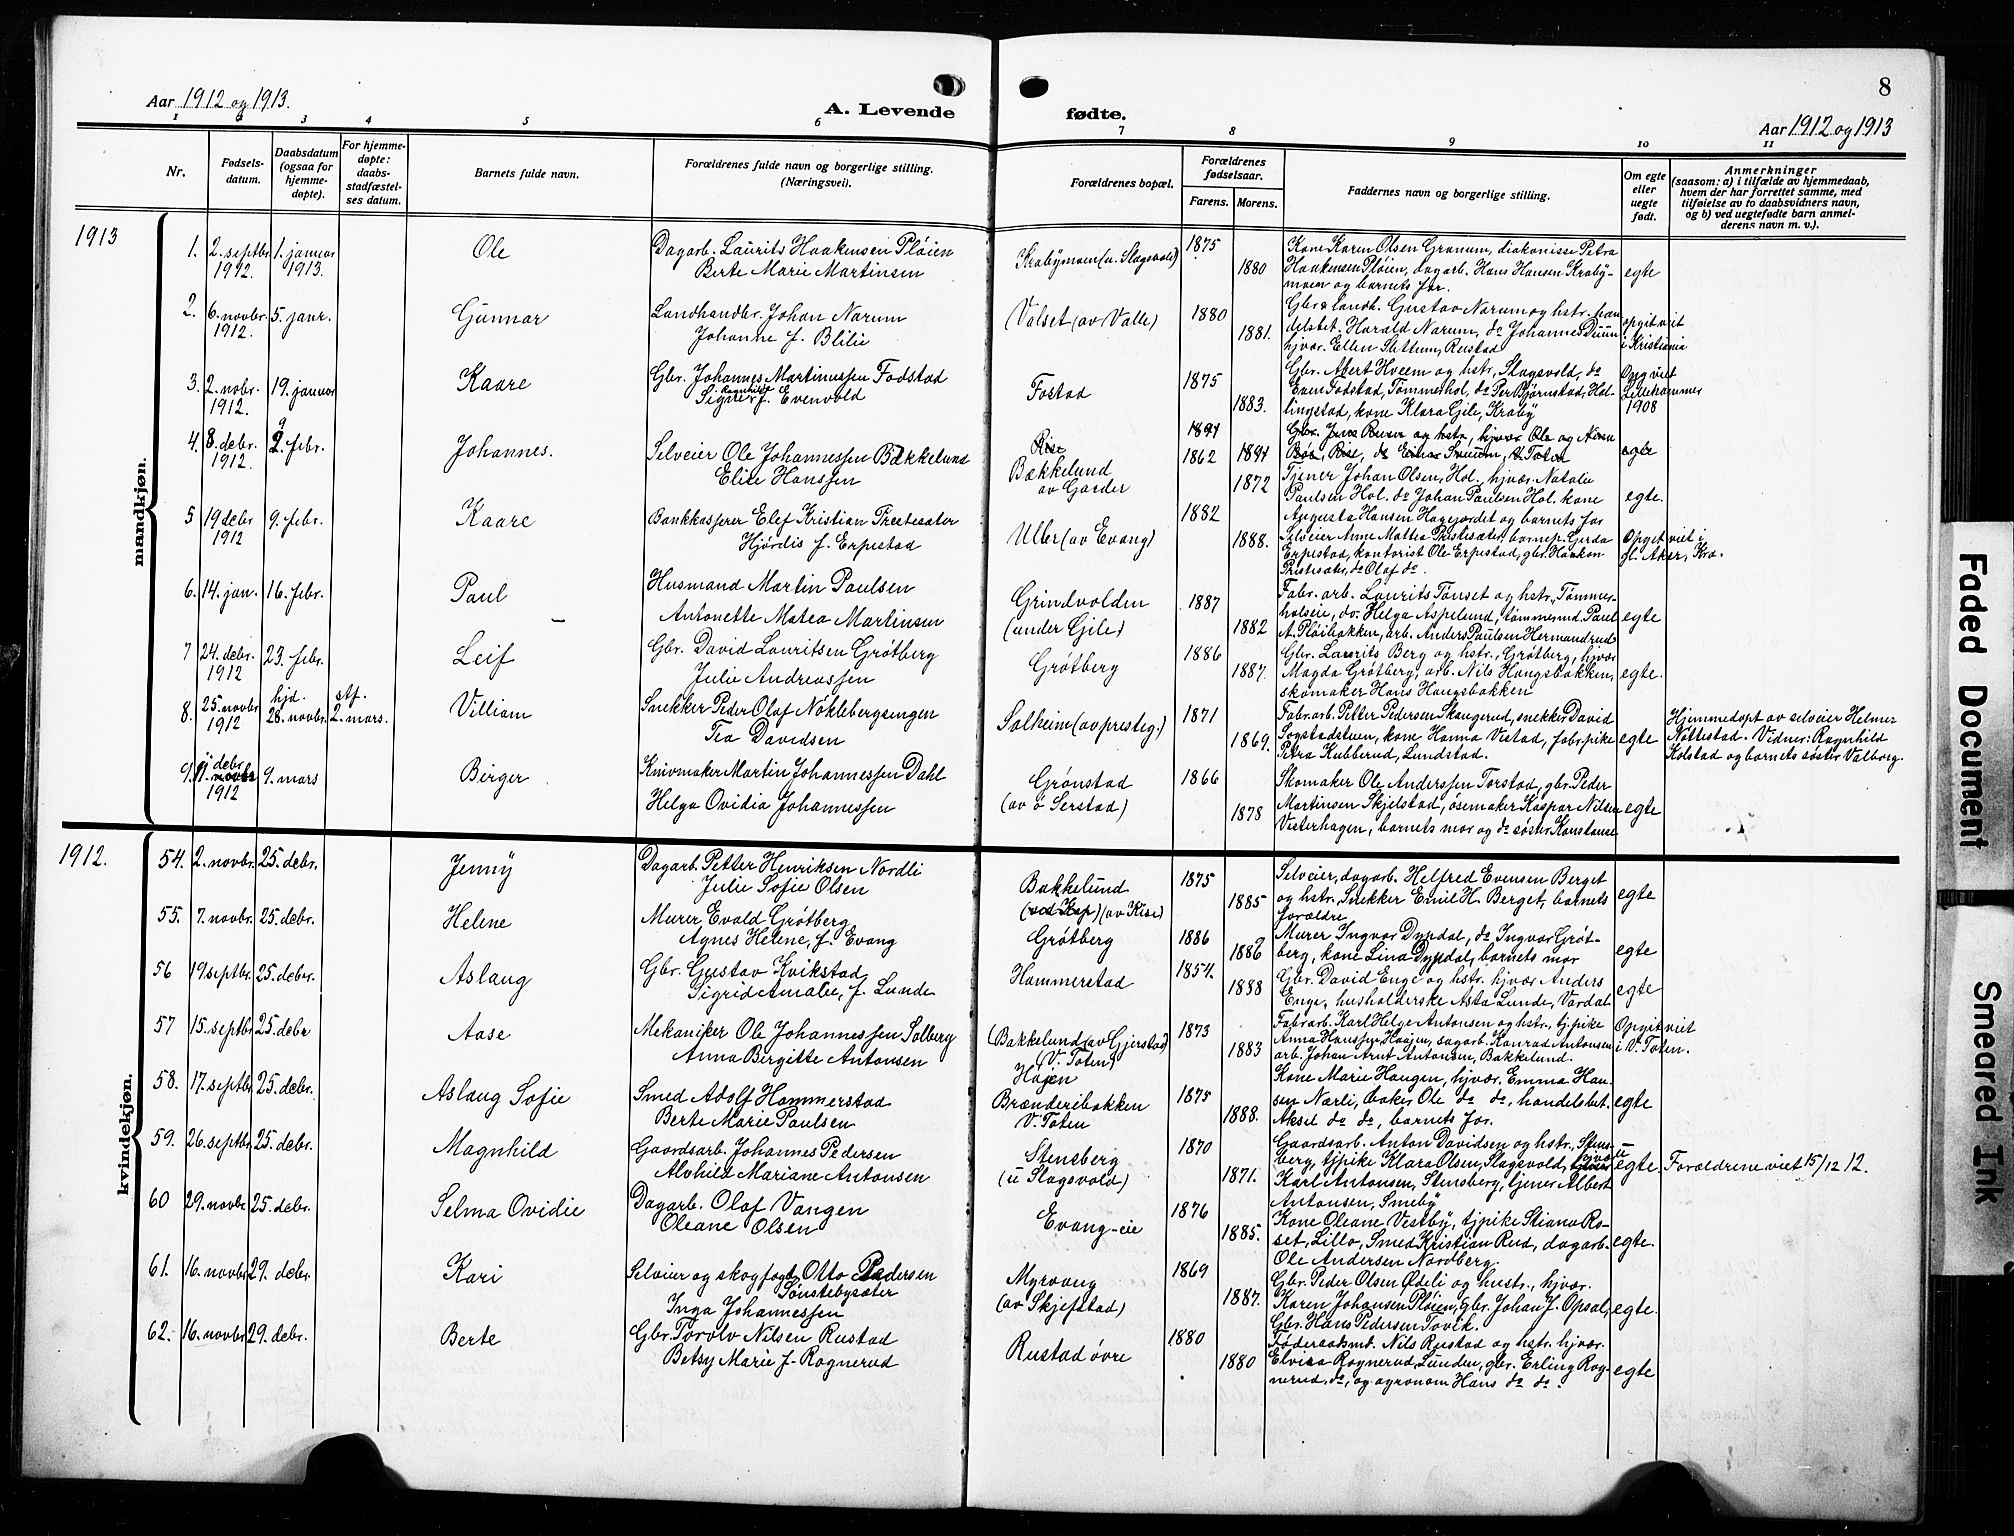 Aar 1912 og 1913.
A. Levende
fødte.
8
Aar 1912 og 1913
1 2 3 4 5 6 7 8 9 10 11
Nr.
Fødsels-
datum.
Daabsdatum
(ogsaa for
hjemme-
døpte).
For hjemme-
døpte:
daabs-
stadfæstel-
ses datum.
Barnets fulde navn.
Forældrenes fulde navn og borgerlige stilling.
(Næringsvei).
Forældrenes bopæl.
Forældrenes
fødselsaar.
Farens. Morens.
Faddernes navn og borgerlige stilling.
Om egte
eller
uegte
født.
Anmerkninger
(saasom: a) i tilfælde av hjemmedaab,
hvem der har forrettet samme, med
tilføielse av to daabsvidners navn,
og b) ved uegtefødte barn anmel-
derens navn m. v.).
1913
mandkjøn.
1. 2. septbr. 1912. 1. januar 1913. Ole
Dagarb. Laurits Haakensen Pløien
Berte Marie Martinsen
Krabymoen (u. Slagsvold) 1875 1880
Kone Karen Olsen Granum, diakonisse Petra
Haakensen Pløien, dagarb. Hans Hansen Kraby-
moen og barnets far.
egte
2. 6. novbr. 1912. 5. janr. Gunnar
Landhandler. Johan Narum
Johanne f. Blilie
Valset (av Valle) 1880 1881.
Gbr & landh. Gustav Narum og hstr. han-
delsbet. Harald Narum, do Johannes Duun
hjvær. Ellen Slettum, Rustad
opgit viet
i Kristiania
3. 2. nobr. 1912. 19. januar Kaare
Gbr. Johannes Martinussen Fodstad
Signe Ramhild f. Evenvold
Fostad 1875 1883.
Gbr. Abert Hveem og hstr., Slagsvold, do
Even Fodstad, Tømmerhol, do Per Bjørnstad, Hol-
lingstad, kone Klara Gile, Kraby
Opg viet
Lillehammer
1908
4. 8. debr. 1912. 9. febr. Johannes.
Selveier Ole Johannessen Bakkelund
Elise Hanssen
Rise
Bakkelund
av Garder
1862 1872
Tjener Johan Olsen, Hol. hjvær. Natalie
Paulsen Hol. do Johan Paulsen Hol. kone
Augusta Hansen Hagejordet og barnets far
egte.
5 19 debr 1912 9. febr. Kaare
Bankkasserer Elef Kristian Prestesæter
Hjørdis f. Erpestad
Ulber (av Evang) 1882 1888.
Selveier Anne Mattea Prestesæter, barnep. Gerda
Erpestad, kontorist Ole Erpestad, gbr. Haakon
Prestesæter, do Olaf do.
Opgit viet i
gl. Aker, Kra.
6. 14. jan. 16. febr. Paul
Husmand Martin Paulsen
Antonette Matea Martinsen
Grindvolden
(under Gile) 1887 1882
Fabr. arb. Laurits Tønset og hstr., Tømmer-
holseie, do. Helga Aspelund, tømmermd. Paul
A. Pløibakken, arb. Anders Paulsen Hermandrud
egte
7 24. debr. 1912 23. febr. Leif
Gbr. David Lauritsen Grøtberg
Julie Andreassen
Grøtberg 1886 1887.
Gbr. Laurits Berg og hstr., Grøtberg, hjvær
Magda Grøtberg, arb. Nils Haugsbakken,
skomaker Hans Haugsbakken
egte.
8. 25. novbr 1912 hjd. 28. novbr. stf. 2. mars. Villiam
Snekker Peder Olaf Noklebergsingen
Tea Davidsen
Solheim (av presteg.) 1871 1869.
Fabr. arb. Petter Pedersen Skaugerud, snekker David
Sogstadstuen, kone Hanna Vestad, fabr. pike
Petra Kubberud, Lundstad.
egte
Hjemmedøpt av selveier Helmer
Nøttestad. Vidner: Ragnhild
Kolstad og barnets søster Valborg.
9. 11. debr. novbr 1912 9. mars Birger
Knivmaker Martin Johannessen Dahl
Helga Ovidia Johannessen
Grønstad
(av ø Serstad) 1866 1878
Skomaker Ole Anderssen Torstad, gbr. Peder
Martinsen Skjelstad, øsemaker Kaspar Nilsen
Vesterhagen, barnets mor og do søster Konstanse
egte
1912.
kvindekjøn.
54. 2. novbr. 25. debr. Jenny
Dagarb. Petter Henriksen Nordli
Julie Sofie Olsen
Bakkelund
(ved Kap) (av Kise) 1875 1885
Selveier, dagarb. Helfred Evensen Berget
og hstr. Snekker Emil H. Berget, barnets
forældre.
egte
55. 7. novbr. 25. debr. Helene
Murer Evald Grøtberg
Agnes Helene, f. Evang
Grøtberg 1886 1886
Murer Ingvar Dyndal, do Ingvar Grøt-
berg, kone Lina Dyndal, barnets mor
egte
56 19. septbr. 25. debr. Aslaug
Gbr. Gustav Kvikstad
Sigrid Amalie, f. Lunde
Hammerstad 1854. 1888
Gbr. David Enge og hstr. hjvær Anders
Enge, husholderske Asta Lunde, Vardal
egte
57 15. septbr. 25. debr Aase
Mekaniker Ole Johannessen Solberg
Anna Bergitte Antonsen
(Bakkelund (av Gjerstad)
(V. Toten) 1873 1883
Fabr arb. Karl Helge Antonsen og hstr., tj. pike
Anna Hanssen Haajen, dagarb. Konrad Antonsen
arb. Johan Arnt Antonsen, Bakkelund.
Opgit viet
i V. Toten.
58. 17. septbr 25. debr. Aslaug Sofie
Smed Adolf Hammerstad
Berte Marie Paulsen
Højen
Brænderibakken
V. Toten 1875 1888.
Kone Marie Haugen, hjvær. Emma Han-
sen Nærli, baker Ole do do, handelsbet.
Aksel do do, barnets far.
egte
59. 26. septbr 25. debr. Magnhild
Gaardsarb. Johannes Pedersen
Alvhild Mariane Antonsen
Stensberg
(u Slagsvold) 1870 1871.
Gaardsarb. Anton Davidsen og hstr., Stens-
berg, tj. pike Klara Olsen, Slagsvold,
Karl Antonsen, Stensberg, tjener Albert
Antonsen, Smeby
uegte
Forældrene viet 15/12 12.
60 29. novbr 25. debr. Selma Ovidie
Dagarb. Olaf Vangen
Oleane Olsen
Evang-eie 1876 1885.
Kone Oleane Vestby, tj. pike Stiana Ro-
set, Lillo, Smed Kristian Rud, dagarb.
Ole Andersen Nordberg.
egte.
61. 16. novbr 29. debr. Kari
Selveier og skogfogd Otto Pedersen
Tønstebysæter
Inga Johannessen
Myrvang
(av Skjefstad) 1869 1887.
Gbr. Peder Olsen Ødeli og hustr., hjvær.
Karen Johansen Pløien, gbr. Johan J. Opsal,
Gbr. Hans Pedersen Tovik.
egte.
62. 16. novbr 29. debr. Berte
Gbr. Torolv Nilsen Rustad
Betsy Marie f. Rognerud
Rustad øvre 1880 1880
Føderaadsmd. Nils Rustad og hstr. hjvær.
Elvisa Rognerud, Lunden, gbr. Erling Rog-
nerud, do, og agronom Hans do do.
egte
Faded Document
Smeared Ink